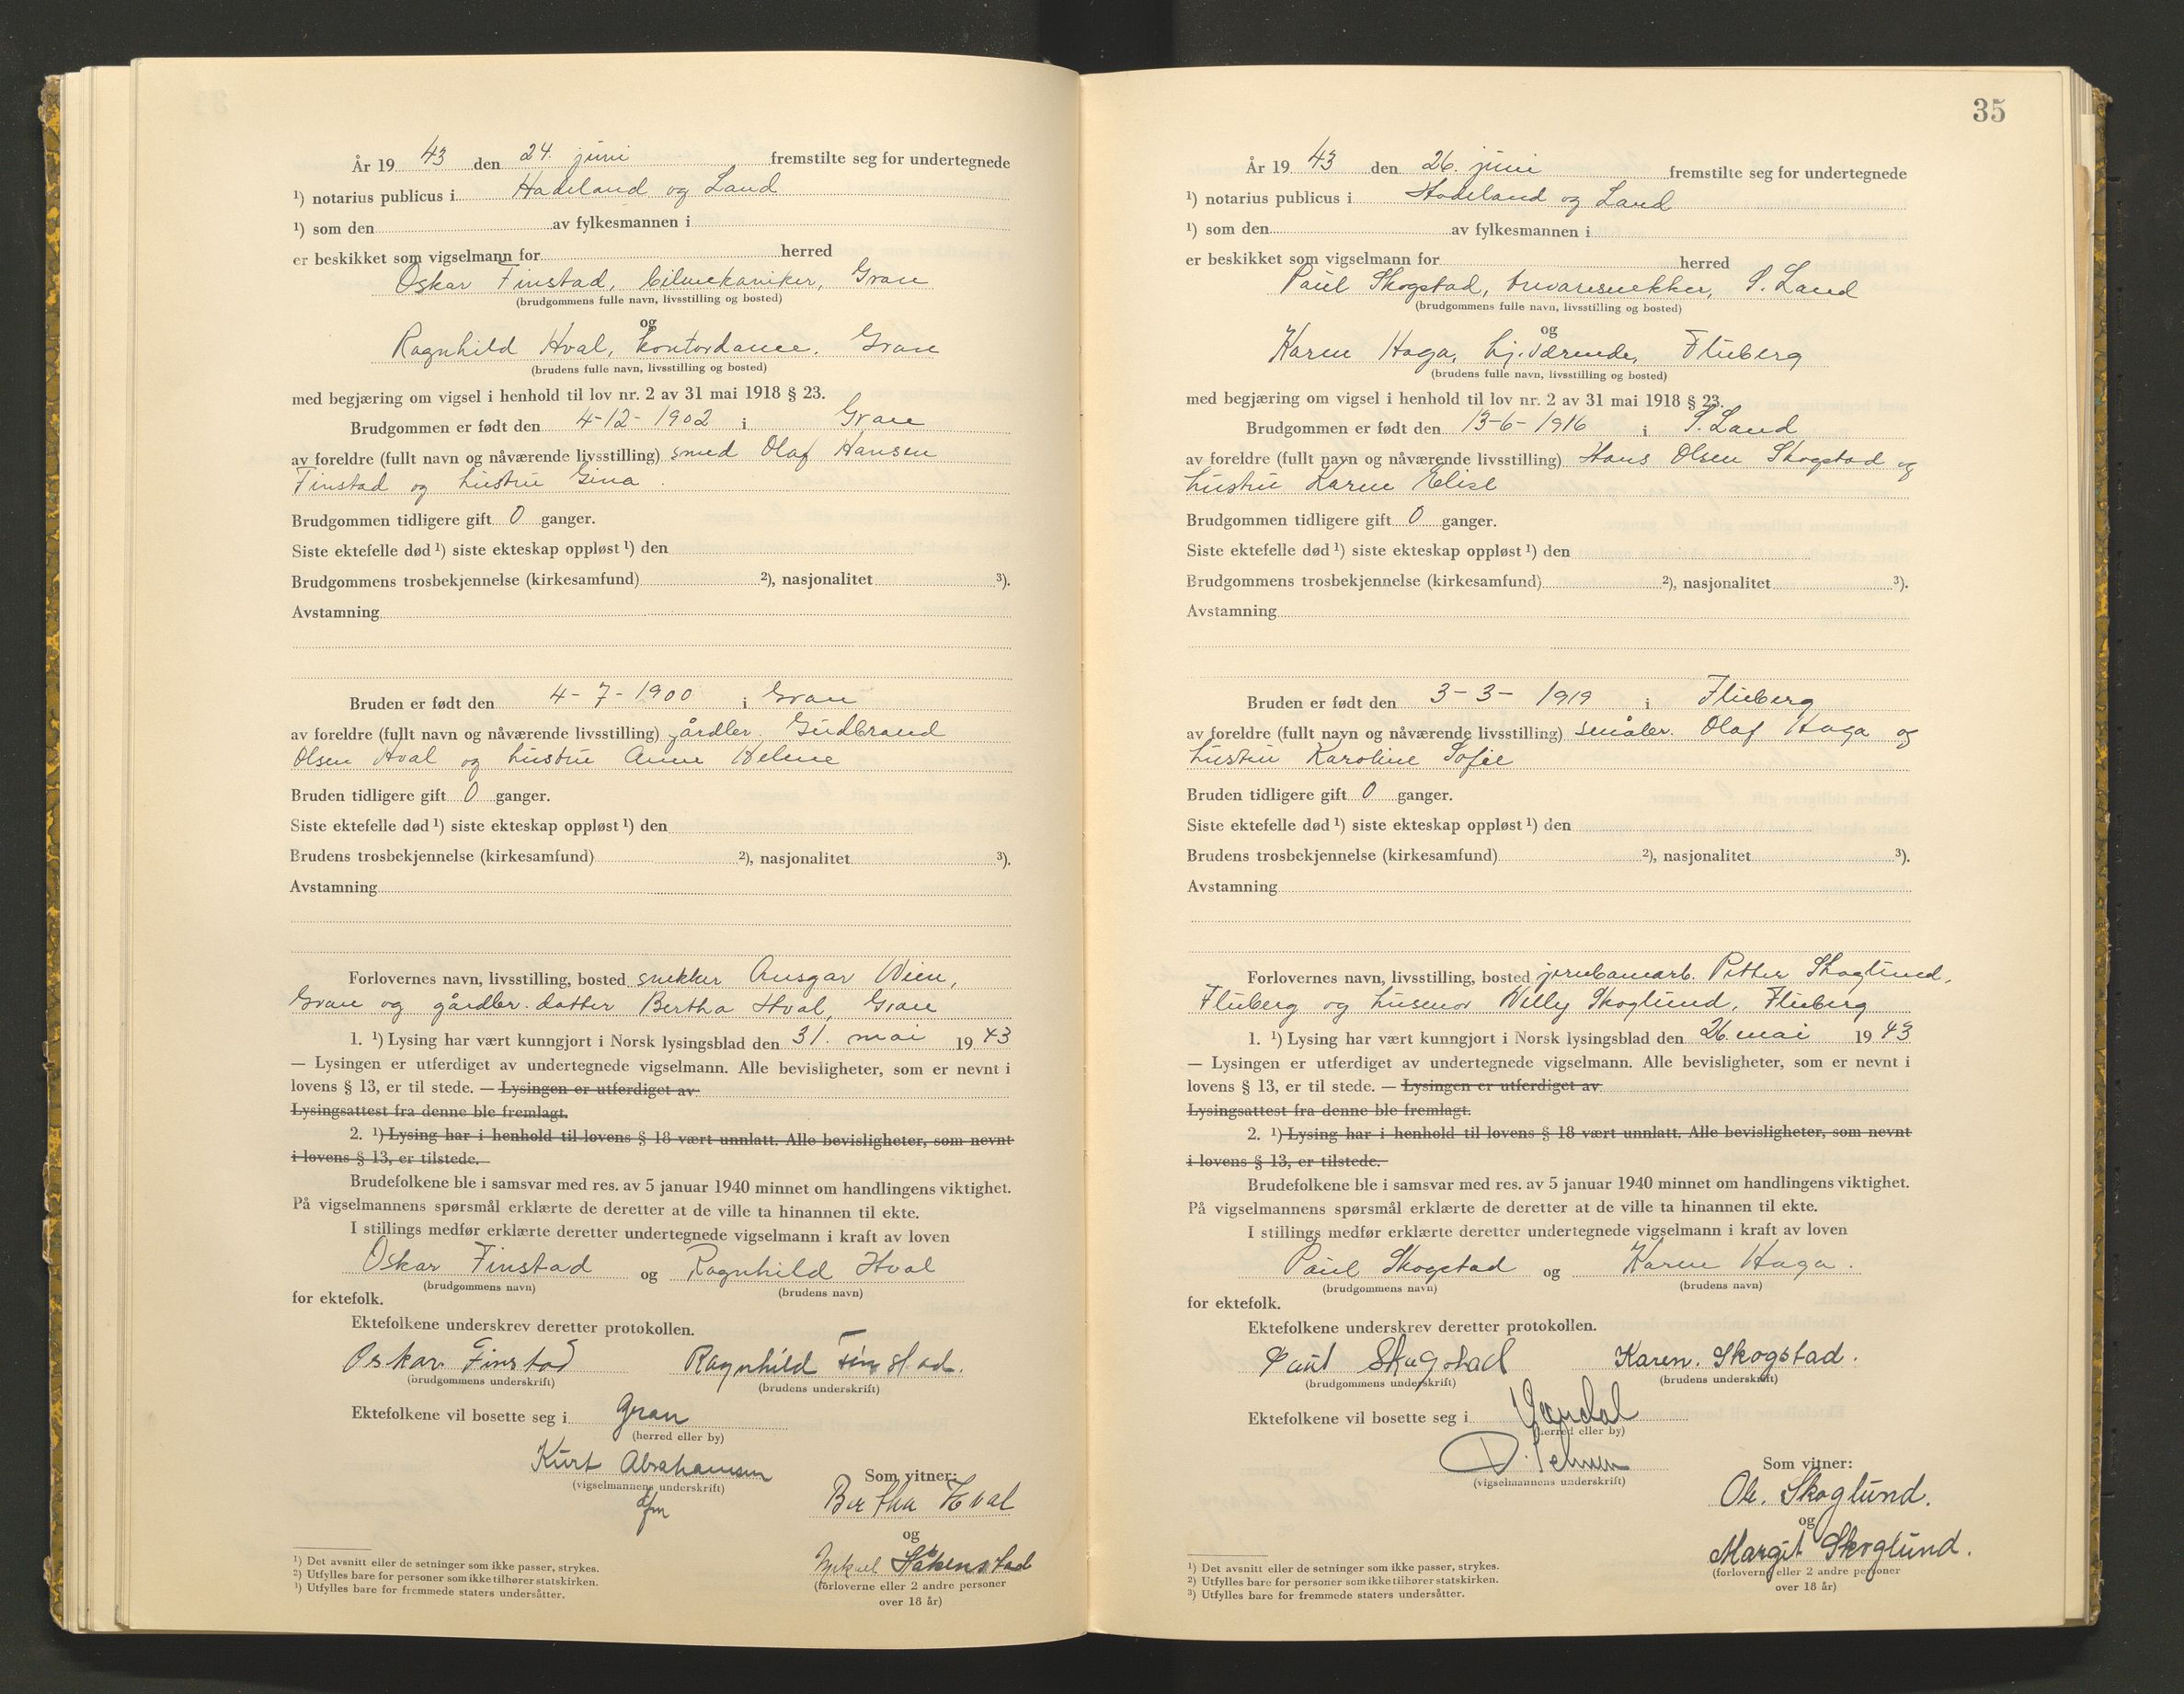 År 19 43 den 24. juni fremstilte seg for undertegnede
¹) notarius publicus i Hadeland og Land
¹) som den av fylkesmannen i
er beskikket som vigselmann for herred
Oskar Finstad, bilmekaniker, Gran
(brudgommens fulle navn, livsstilling og bosted)
og
Ragnhild Hval, kontordame. Gran
(brudens fulle navn, livsstilling og bosted)
med begjæring om vigsel i henhold til lov nr. 2 av 31 mai 1918 § 23.
Brudgommen er født den 4-12-1902 i Gran
av foreldre (fullt navn og nåværende livsstilling) smed Olaf Hansen
Finstad og hustru Gina.
Brudgommen tidligere gift 0 ganger.
Siste ektefelle død ¹) siste ekteskap oppløst ¹) den
Brudgommens trosbekjennelse (kirkesamfund) ²), nasjonalitet ³).
Avstamning
Bruden er født den 4-7-1900 i Gran
av foreldre (fullt navn og nåværende livsstilling) gårdbr. Gudbrand
Olsen Hval og hustru Anne Helene
Bruden tidligere gift 0 ganger.
Siste ektefelle død ¹) siste ekteskap oppløst ¹) den
Brudens trosbekjennelse (kirkesamfund) ²), nasjonalitet ³).
Avstamning
Forlovernes navn, livsstilling, bosted snekker Ansgar Wien,
Gran og gårdbr. datter Bertha Hval, Gran
1. ¹) Lysing har vært kunngjort i Norsk lysingsblad den 31. mai 19 43
— Lysingen er utferdiget av undertegnede vigselmann. Alle bevisligheter, som er nevnt i
lovens § 13, er til stede. — Lysingen er utferdiget av
Lysingsattest fra denne ble fremlagt.
2. ¹) Lysing har i henhold til lovens § 18 vært unnlatt. Alle bevisligheter, som nevnt
i lovens § 13, er tilstede.
Brudefolkene ble i samsvar med res. av 5 januar 1940 minnet om handlingens viktighet.
På vigselmannens spørsmål erklærte de deretter at de ville ta hinannen til ekte.
I stillings medfør erklærte deretter undertegnede vigselmann i kraft av loven
Oskar Finstad og Ragnhild Hval
(brudgommens navn) (brudens navn)
for ektefolk.
Ektefolkene underskrev deretter protokollen.
Oskar Finstad Ragnhild Finstad.
(brudgommens underskrift) (brudens underskrift)
Ektefolkene vil bosette seg i Gran
(herred eller by)
Kurt Abrahamsen
(vigselmannens underskrift)
dfm
Som vitner:
Bertha Hval
og
Mikael Håkenstad
(forloverne eller 2 andre personer
over 18 år)
¹) Det avsnitt eller de setninger som ikke passer, strykes.
²) Utfylles bare for personer som ikke tilhører statskirken.
³) Utfylles bare for fremmede staters undersåtter.
35
År 19 43 den 26. juni fremstilte seg for undertegnede
¹) notarius publicus i Hadeland og Land
¹) som den av fylkesmannen i
er beskikket som vigselmann for herred
Paul Skogstad, trevaresnekker, S. Land
(brudgommens fulle navn, livsstilling og bosted)
og
Karen Haga, hj. værende, Fluberg
(brudens fulle navn, livsstilling og bosted)
med begjæring om vigsel i henhold til lov nr. 2 av 31 mai 1918 § 23.
Brudgommen er født den 13-6-1916 i S. Land
av foreldre (fullt navn og nåværende livsstilling) Hans Olsen Skogstad og
hustru Karen Elise
Brudgommen tidligere gift 0 ganger.
Siste ektefelle død ¹) siste ekteskap oppløst ¹) den
Brudgommens trosbekjennelse (kirkesamfund) ²), nasjonalitet ³).
Avstamning
Bruden er født den 3-3-1919 i Fluberg
av foreldre (fullt navn og nåværende livsstilling) småbr. Olaf Haga og
hustru Karoline Sofie
Bruden tidligere gift 0 ganger.
Siste ektefelle død ¹) siste ekteskap oppløst ¹) den
Brudens trosbekjennelse (kirkesamfund) ²), nasjonalitet ³).
Avstamning
Forlovernes navn, livsstilling, bosted jernbanearb. Petter Skoglund,
Fluberg og husmor Willy Skoglund, Fluberg
1. ¹) Lysing har vært kunngjort i Norsk lysingsblad den 26. mai 19 43
— Lysingen er utferdiget av undertegnede vigselmann. Alle bevisligheter, som er nevnt i
lovens § 13, er til stede. — Lysingen er utferdiget av
Lysingsattest fra denne ble fremlagt.
2. ¹) Lysing har i henhold til lovens § 18 vært unnlatt. Alle bevisligheter, som nevnt
i lovens § 13, er tilstede.
Brudefolkene ble i samsvar med res. av 5 januar 1940 minnet om handlingens viktighet.
På vigselmannens spørsmål erklærte de deretter at de ville ta hinannen til ekte.
I stillings medfør erklærte deretter undertegnede vigselmann i kraft av loven
Paul Skogstad og Karen Haga.
(brudgommens navn) (brudens navn)
for ektefolk.
Ektefolkene underskrev deretter protokollen.
Paul Skogstad Karen. Skogstad.
(brudgommens underskrift) (brudens underskrift)
Ektefolkene vil bosette seg i
(herred eller by)
(vigselmannens underskrift)
Som vitner:
Skoglund.
og
Margit Skoglund.
(forloverne eller 2 andre personer
over 18 år)
¹) Det avsnitt eller de setninger som ikke passer, strykes.
²) Utfylles bare for personer som ikke tilhører statskirken.
³) Utfylles bare for fremmede staters undersåtter.